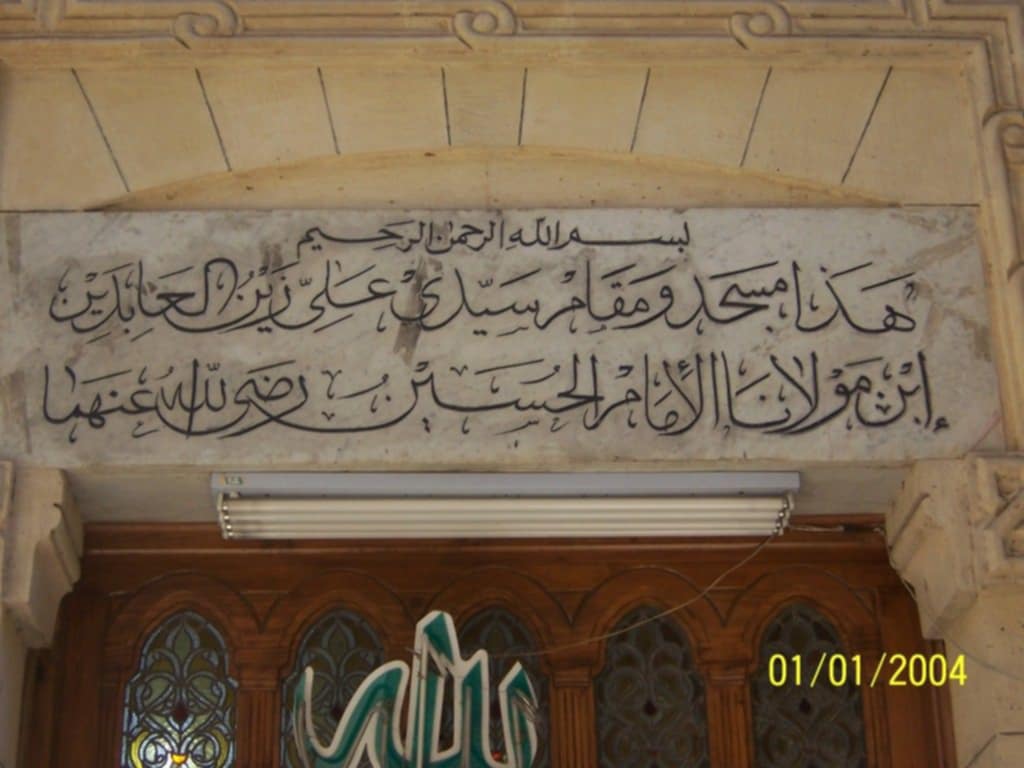 بسم الله الرحمن الرحيم
هَذا مسجد ومَقَامْ سَيّدىْ عَلىِّ زَيْن العَابِدَيْن
إبْن مَوْلانَا الإمَامْ الحُسَيْن رضَى اللهُ عِنهمَا
الله
01/01/2004